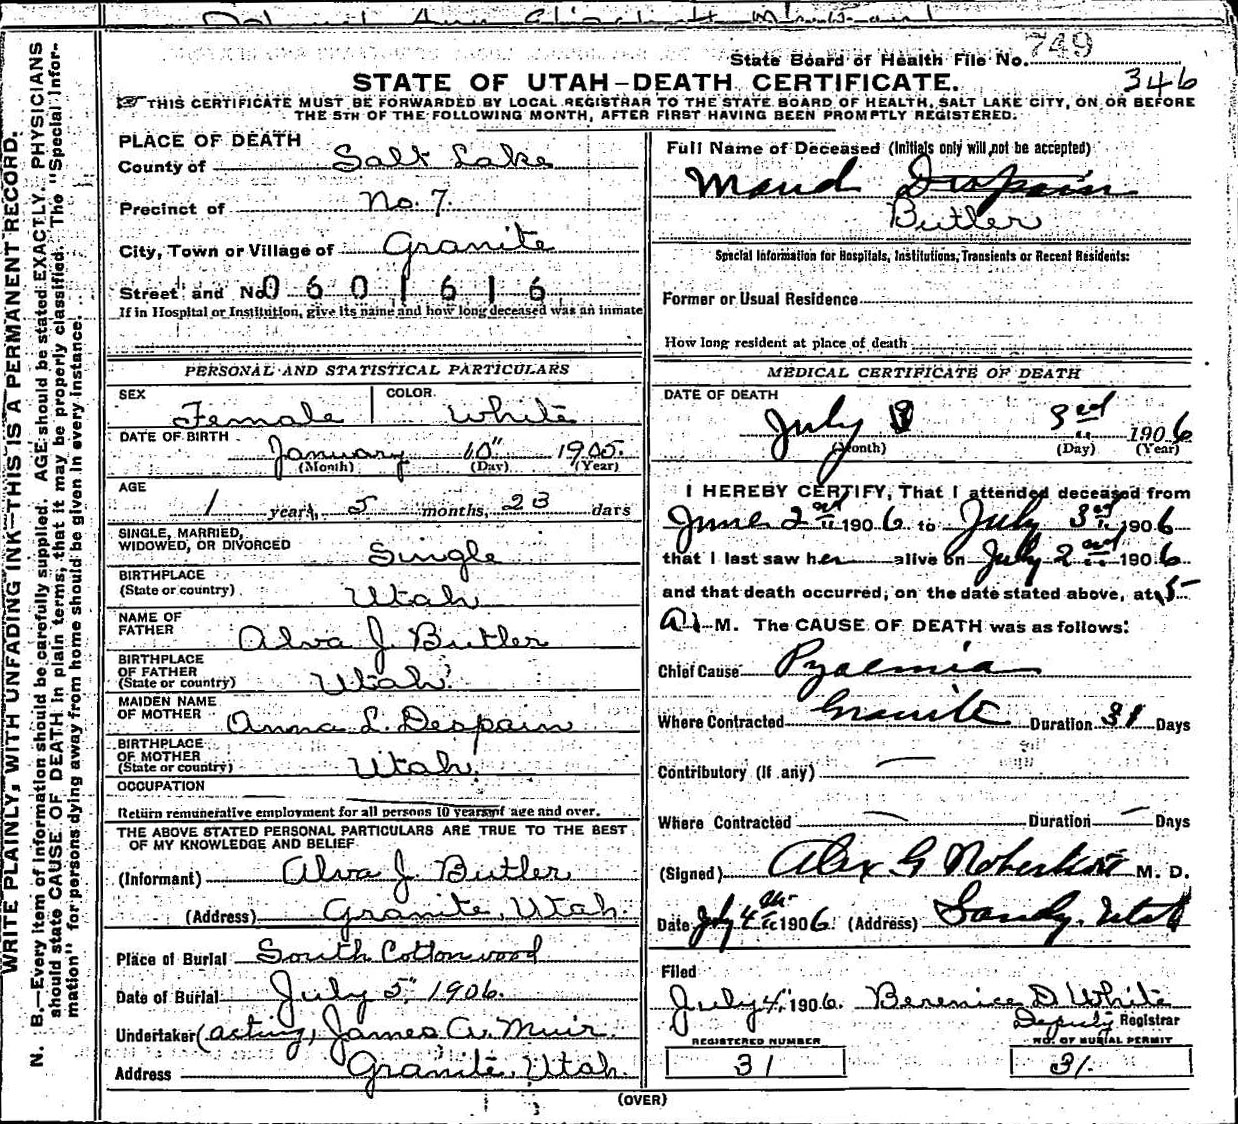 749
State Board of Health File No.
346
STATE OF UTAH—DEATH CERTIFICATE.
THIS CERTIFICATE MUST BE FORWARDED BY LOCAL REGISTRAR TO THE STATE BOARD OF HEALTH, SALT LAKE CITY, ON OR BEFORE
THE 5TH OF THE FOLLOWING MONTH, AFTER FIRST HAVING BEEN PROMPTLY REGISTERED.
WRITE PLAINLY, WITH UNFADING INK—THIS IS A PERMANENT RECORD.
N. B.—Every item of information should be carefully supplied. AGE should be stated EXACTLY. PHYSICIANS
should state CAUSE OF DEATH in plain terms, that it may be properly classified. The "Special Infor-
mation" for persons dying away from home should be given in every instance.
PLACE OF DEATH
County of Salt Lake
Precinct of No. 7.
City, Town or Village of Granite
Street and No. 0601616
If in Hospital or Institution, give its name and how long deceased was an inmate
PERSONAL AND STATISTICAL PARTICULARS
SEX Female COLOR White
DATE OF BIRTH January 10" 1905.
(Month) (Day) (Year)
AGE 1 years, 5 months, 23 days
SINGLE, MARRIED,
WIDOWED, OR DIVORCED Single
BIRTHPLACE
(State or country) Utah
NAME OF
FATHER Alva J. Butler
BIRTHPLACE
OF FATHER
(State or country) Utah
MAIDEN NAME
OF MOTHER Anna L. Despain
BIRTHPLACE
OF MOTHER
(State or country) Utah.
OCCUPATION
Return remunerative employment for all persons 10 years of age and over.
THE ABOVE STATED PERSONAL PARTICULARS ARE TRUE TO THE BEST
OF MY KNOWLEDGE AND BELIEF
(Informant) Alva J. Butler
(Address) Granite, Utah.
Place of Burial South Cottonwood
Date of Burial July 5" 1906.
Undertaker (acting) James A. Muir.
Address Granite, Utah.
Full Name of Deceased (Initials only will not be accepted)
Maud Despain
Butler
Special Information for Hospitals, Institutions, Transients or Recent Residents:
Former or Usual Residence
How long resident at place of death
MEDICAL CERTIFICATE OF DEATH
DATE OF DEATH
July 3rd 1906
(Month) (Day) (Year)
I HEREBY CERTIFY, That I attended deceased from
June 2nd 1906 to July 3rd 1906
that I last saw her alive on July 2nd 1906
and that death occurred, on the date stated above, at 5
A. M. The CAUSE OF DEATH was as follows:
Chief Cause Pyaemia
Where Contracted Granite Duration 31 Days
Contributory (If any) —
Where Contracted — Duration — Days
(Signed) Alex G Robertson M. D.
Date July 4th 1906 (Address) Sandy, Utah
Filed
July 4, 1906. Berenice D. White
Deputy Registrar
REGISTERED NUMBER
31
NO. OF BURIAL PERMIT
31.
(OVER)